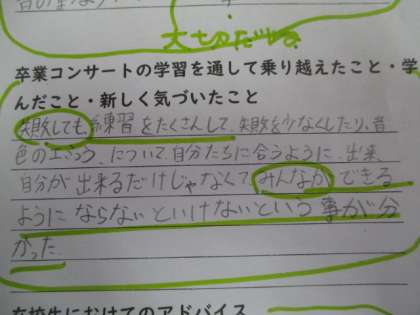 大切だな
卒業コンサートの学習を通して乗り越えたこと・学
んだこと・新しく気づいたこと
失敗しても、練習をたくさんして、失敗を少なくしたり、音
色の工夫う、について、自分たちに合うように、出来、
自分が出来るだけじゃなくて、みんなができる
ようにならないといけないという事が分
かった
在校生におけてのアドバイス